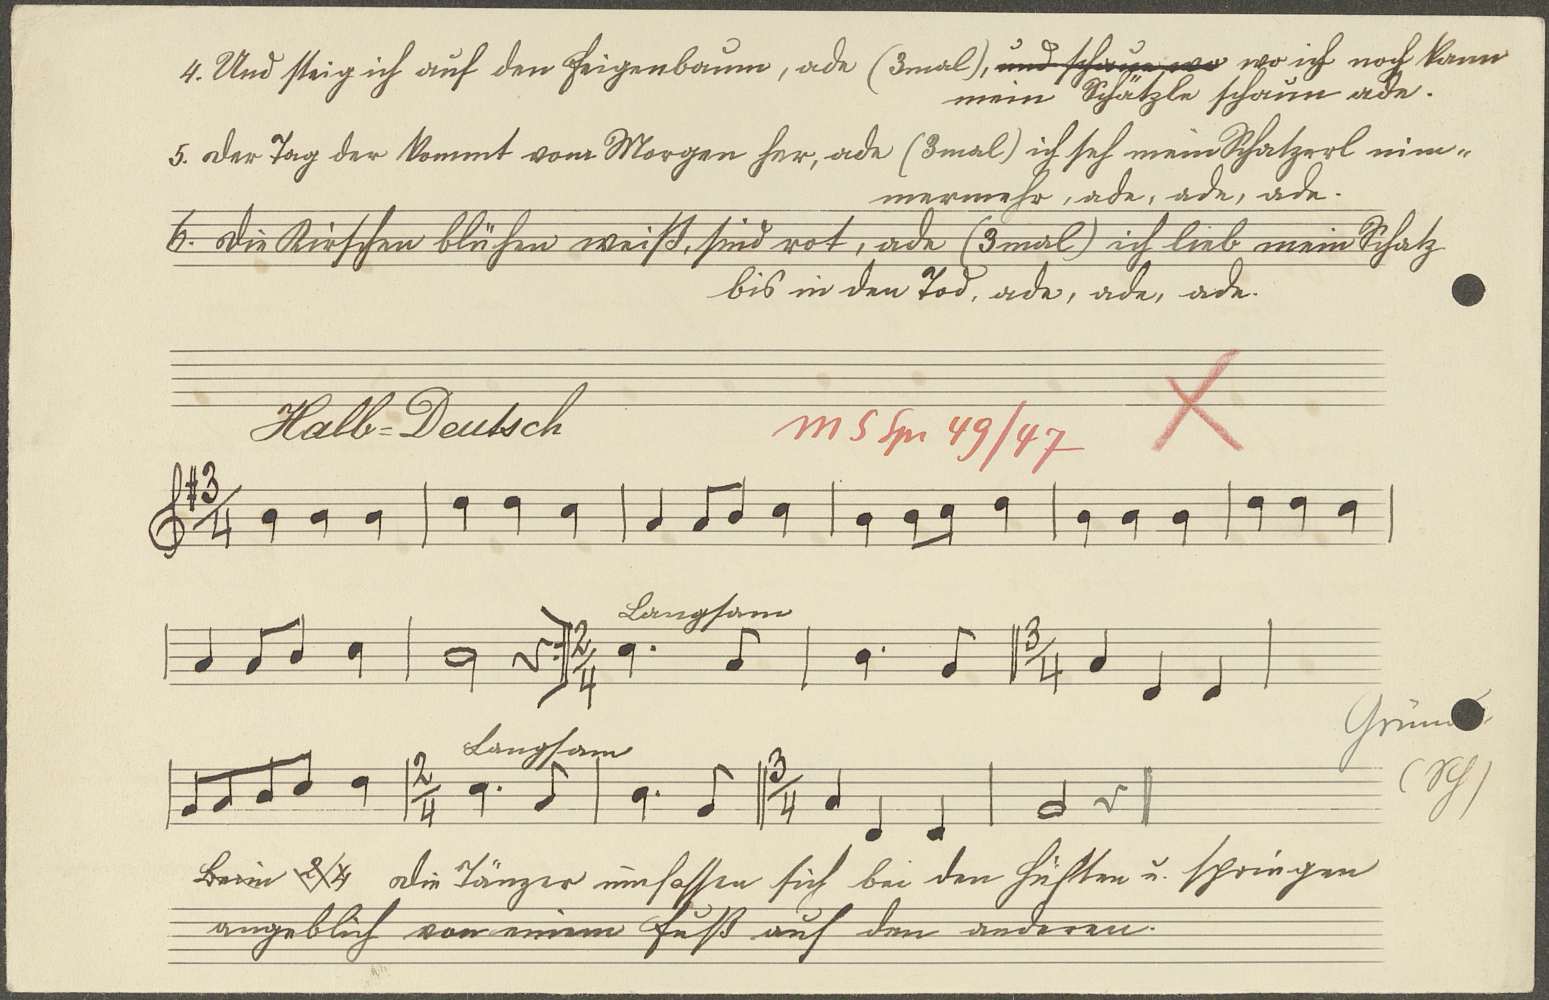 4. Und steig ich auf den Feigenbaum, ade (3mal), und schaue, wo wo ich noch kann
mein Schätzle schaun ade.
5. Der Tag der kommt vom Morgen her, ade (3mal) ich seh mein Schatzerl nim-
mermehr, ade, ade, ade.
6. Die Kirschen blühen weiß, sind rot, ade (3mal) ich lieb mein Schatz
bis in den Tod, ade, ade, ade.
Halb=Deutsch
49/47
3/4
Langsam
2/4
3/4
(Sch)
Langsam
2/4
3/4
Beim 2/4 Die Tänzer umfassen sich bei den Hüften u. springen
angeblich von einem Fuß auf den anderen.